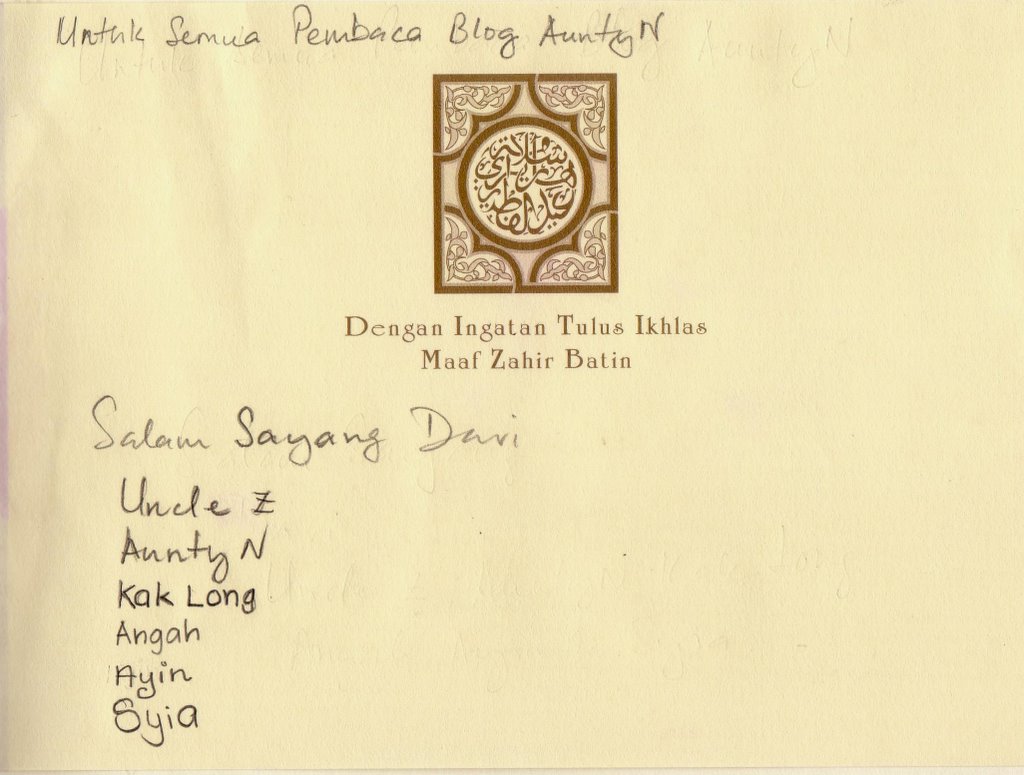 Untuk Semua Pembaca Blog Aunty N
Dengan Ingatan Tulus Ikhlas
Maaf Zahir Batin
Salam Sayang Dari
Uncle Z
Aunty N
Kak Long
Angah
Ayin
Syia